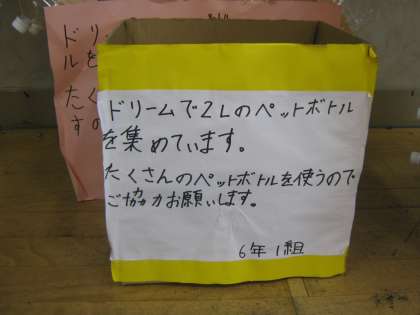 ドリームで2Lのペットボトル
を集めています。
たくさんのペットボトルを使うので
ご協力お願いします。
6年1組
ド
ルを
たく
すの